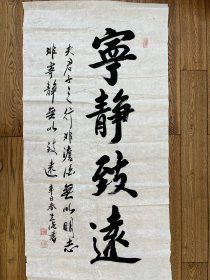 寧靜致遠
夫君子之行非澹泊無以明志
非寧靜無以致遠